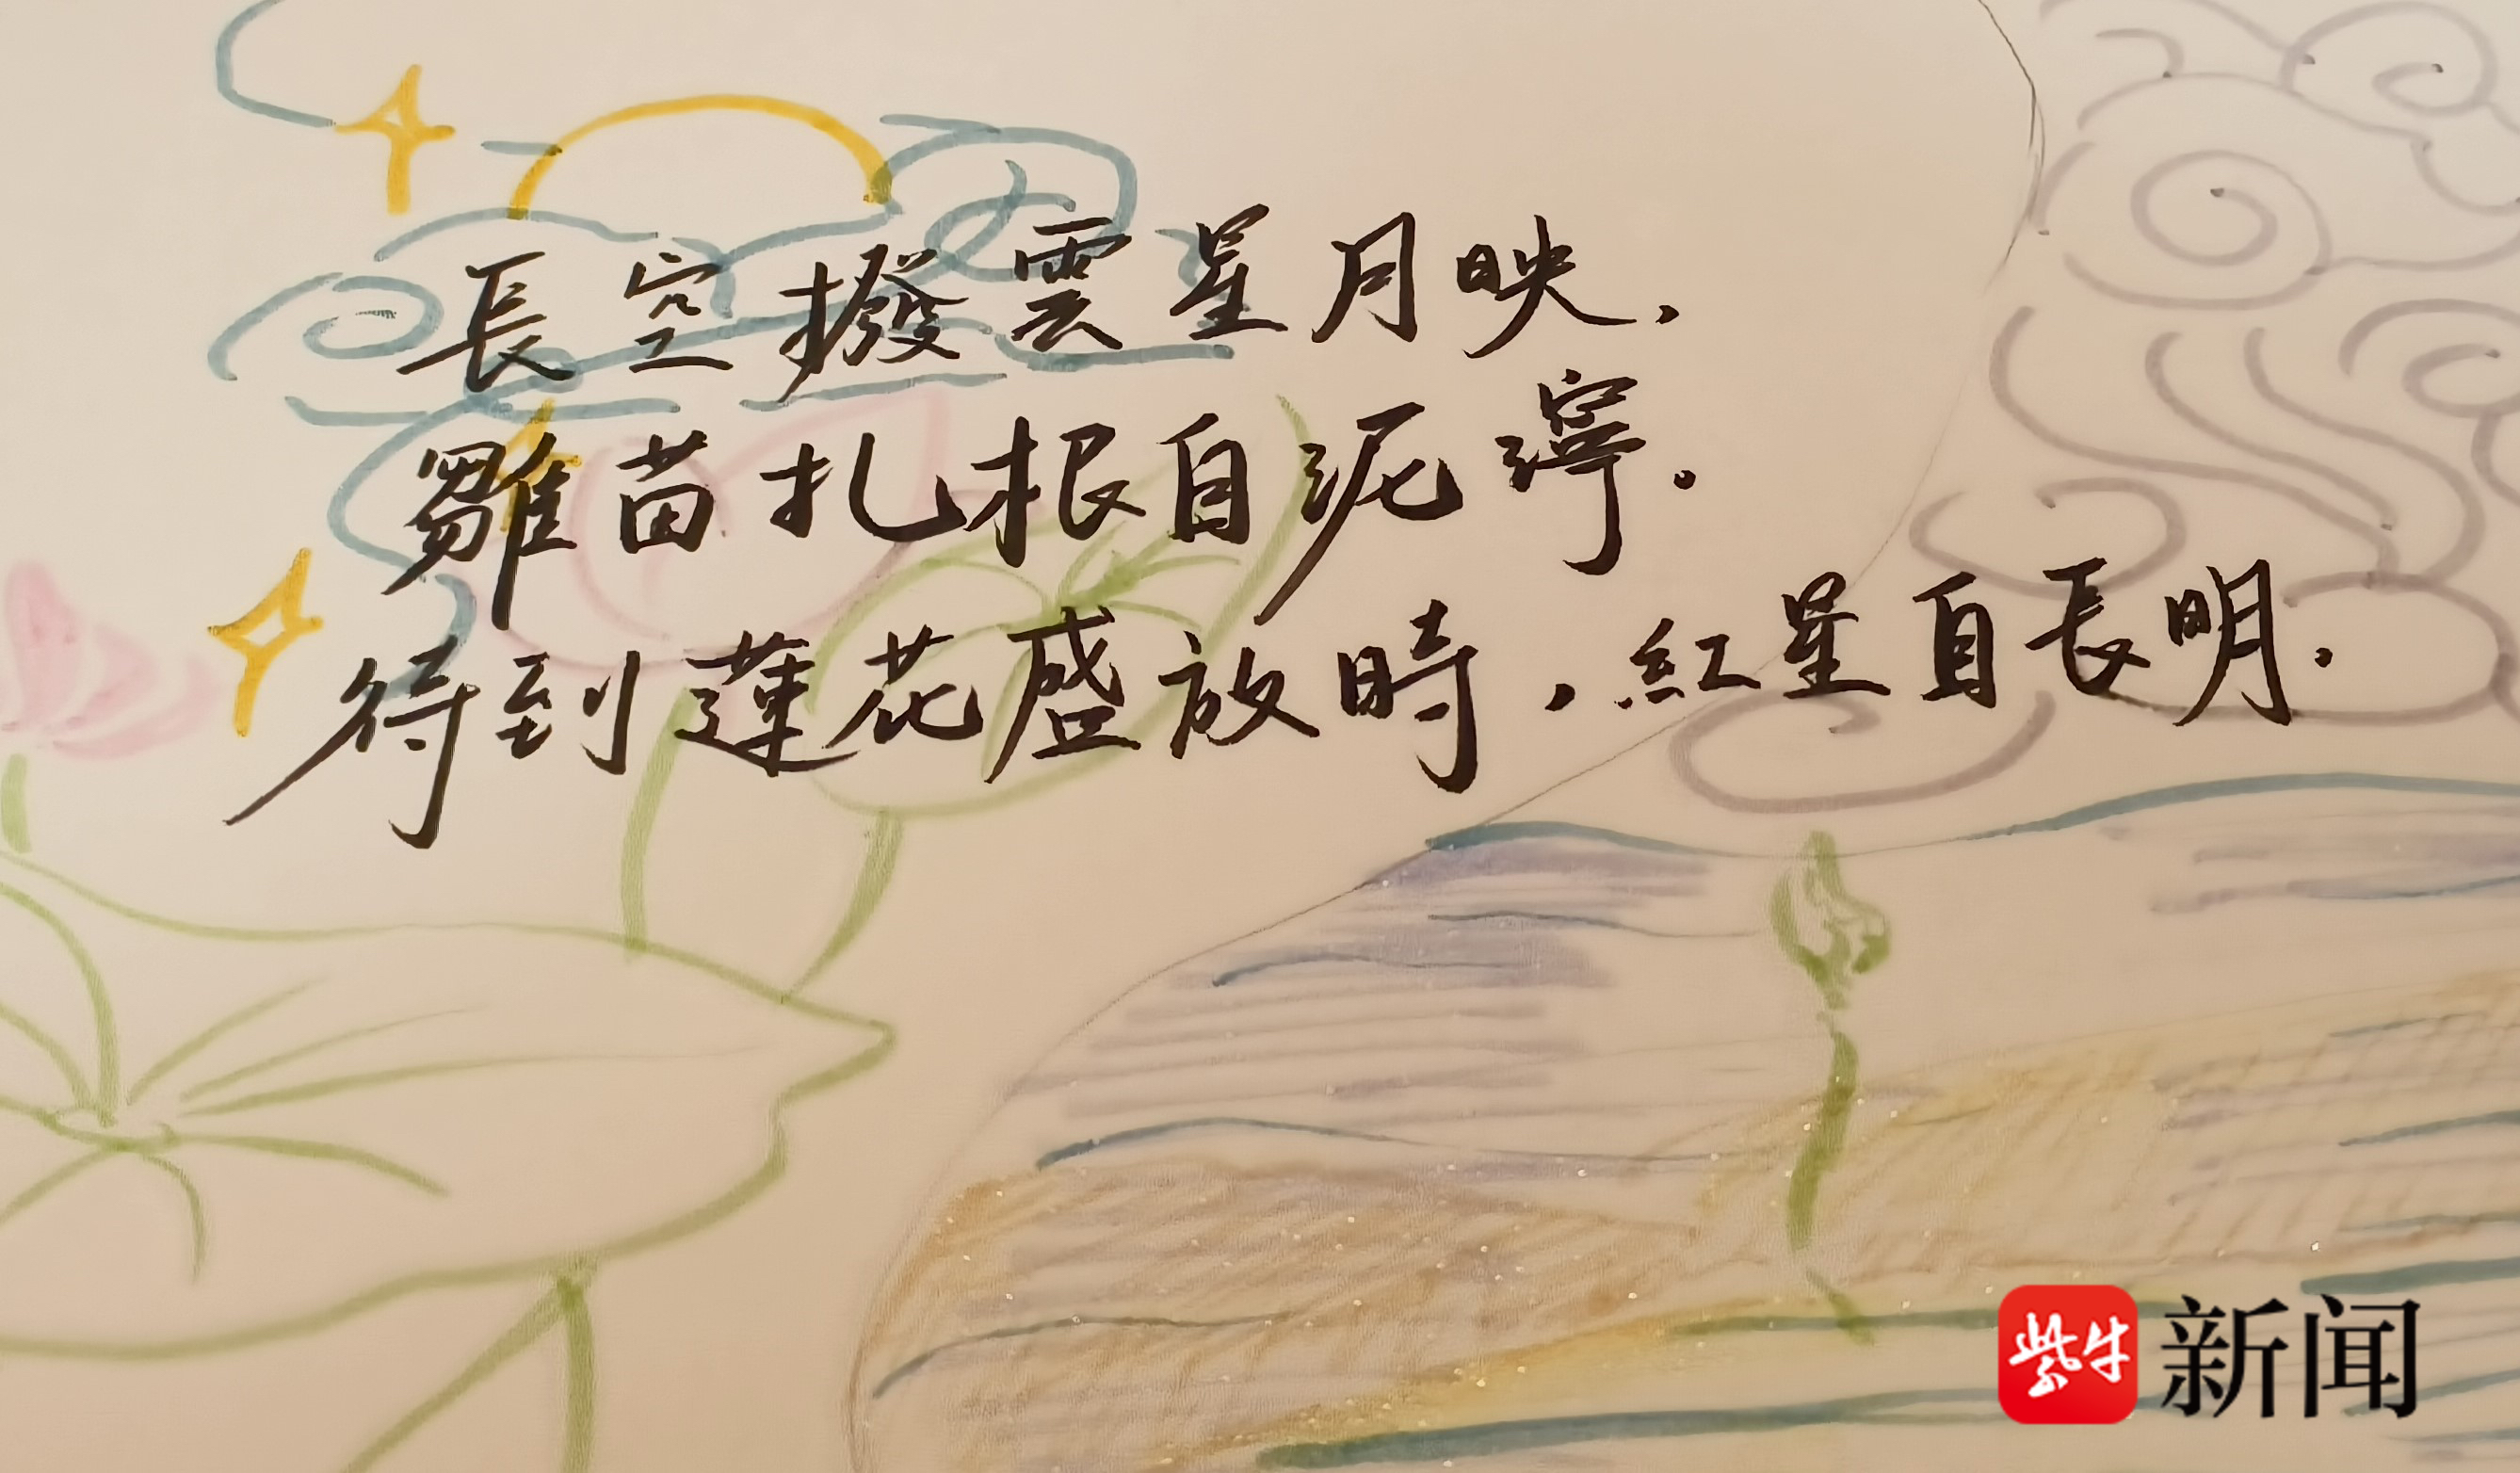 長空撥雲星月映，
雛苗扎根自泥濘。
待到蓮花盛放時，紅星自長明．
紫牛 新闻